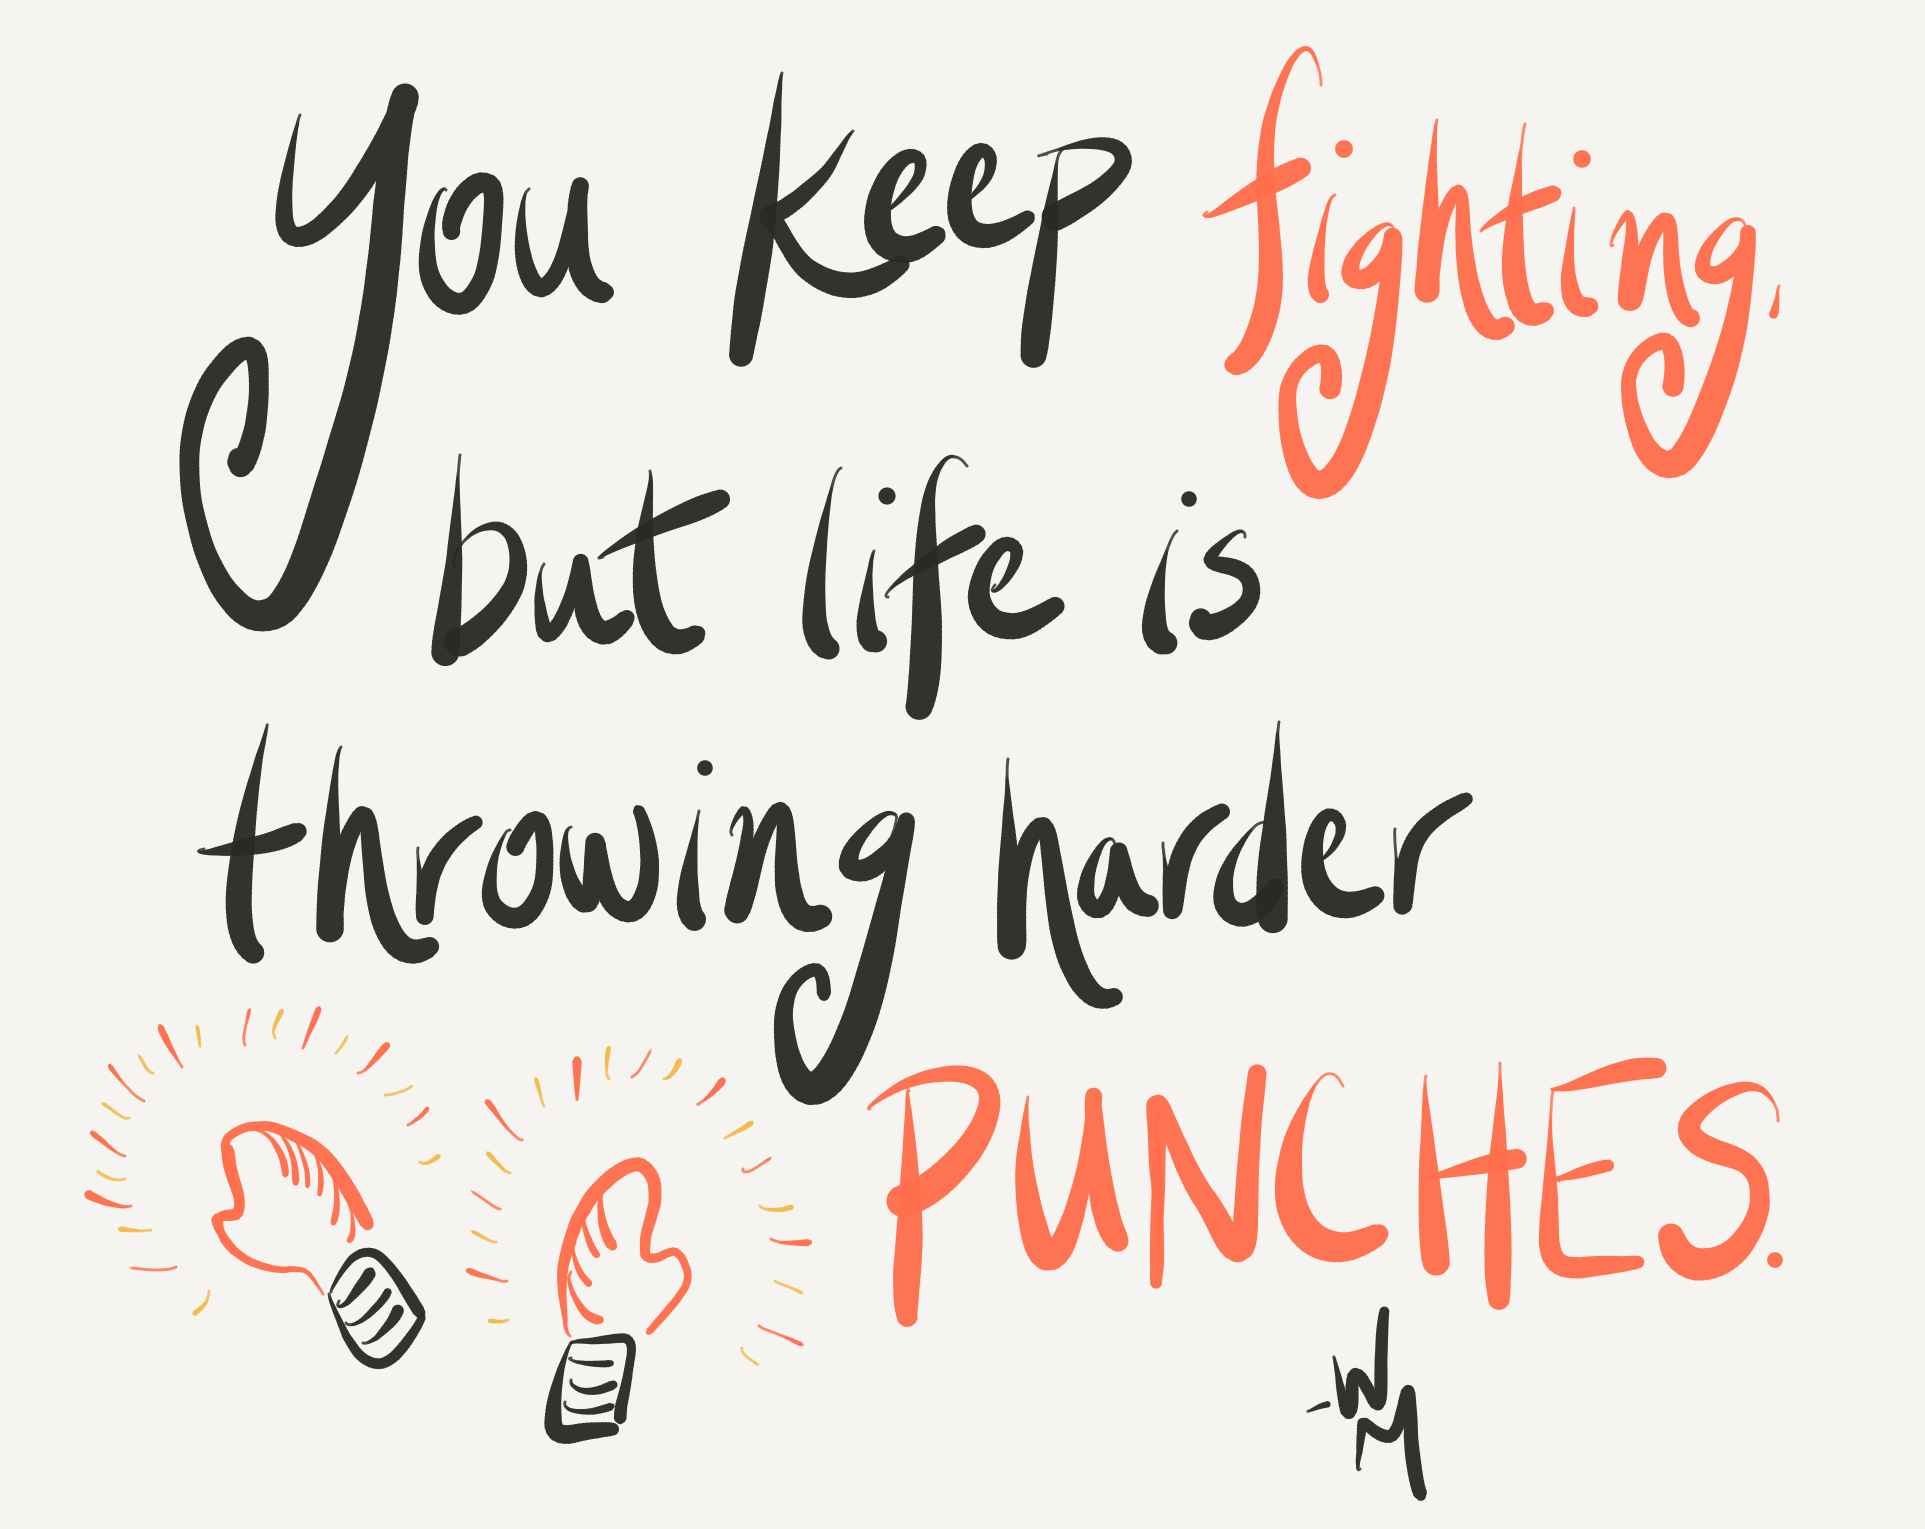 You keep fighting,
but life is
throwing harder
PUNCHES.
-WM